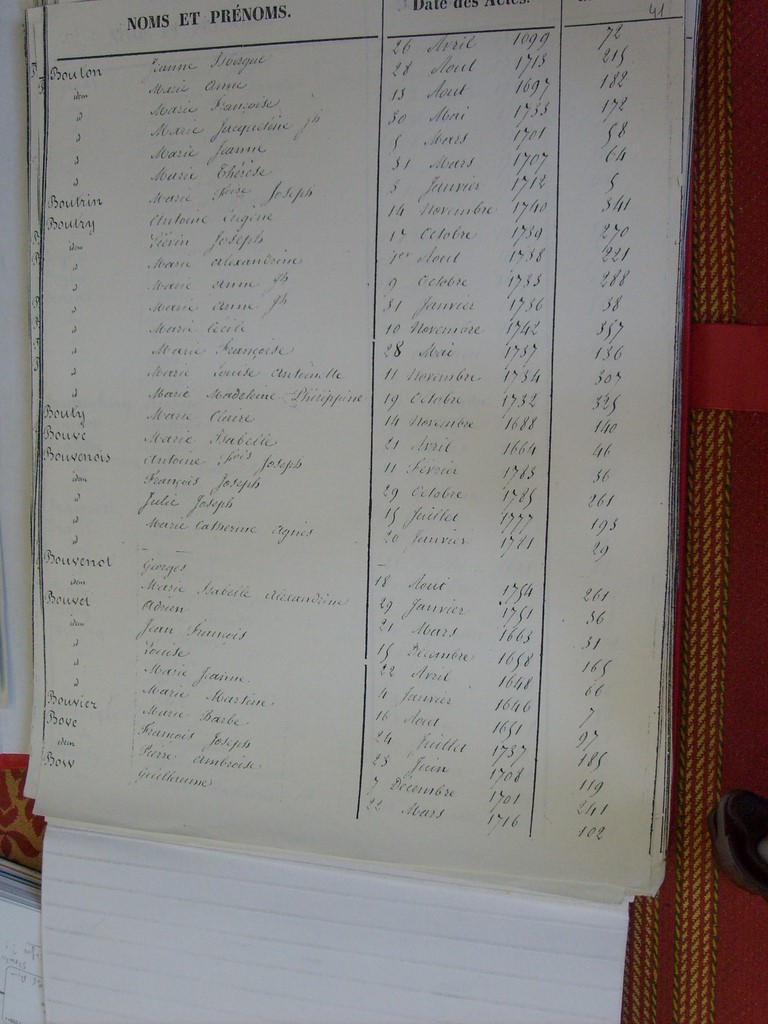 41
NOMS ET PRÉNOMS. Date des Actes.
Bouton Jeanne 26 Avril 1699 72
idem Marie Anne 28 Aout 1713 215
d Marie Françoise 13 Aout 1697 182
d Marie Jacqueline Jh 30 Mai 1733 172
d Marie Jeanne 5 Mars 1701 58
d Marie Thérèse 31 Mars 1707 64
d Marie Joseph 3 Janvier 1712 5
Boutrin Antoine Eugène 14 Novembre 1740 341
Boutry Firmin Joseph 17 Octobre 1739 270
idem Marie Alexandrine 1er Aout 1738 221
d Marie Anne Jh 9 Octobre 1733 288
d Marie Anne Jh 31 Janvier 1736 38
d Marie Cécile 10 Novembre 1742 357
d Marie Françoise 28 Mai 1737 136
d Marie Louise Antoinette 11 Novembre 1734 307
d Marie Madeleine Philippine 19 Octobre 1732 325
Bouty Marie Claire 14 Novembre 1688 140
Bouve Marie Isabelle 21 Avril 1664 46
Bouvenois Antoine Fois Joseph 11 Février 1783 36
idem François Joseph 29 Octobre 1785 261
d Julie Joseph 15 Juillet 1777 193
d Marie Catherine Agnès 20 Janvier 1721 29
Bouvenot Georges
idem Marie Isabelle Alexandrine 18 Aout 1754 261
Bouvet Adrien 29 Janvier 1751 36
idem Jean François 21 Mars 1663 31
d Louise 15 Décembre 1658 165
d Marie Jeanne 22 Avril 1648 66
d Marie Martine 4 Janvier 1646 7
Bouvier Marie Barbe 16 Aout 1651 97
Bove François Joseph 24 Juillet 1737 185
idem Pierre Ambroise 23 Juin 1708 119
Bow Guillaume 7 Décembre 1701 241
22 Mars 1716 102